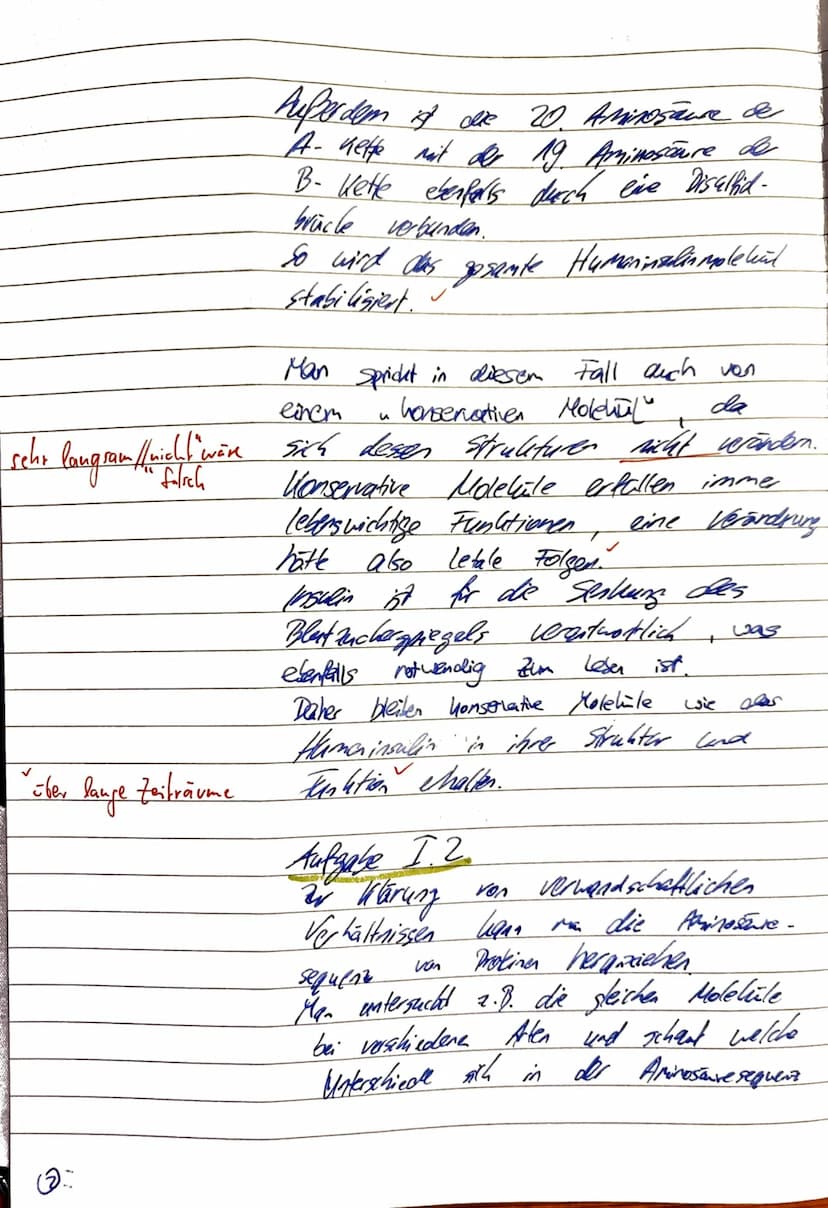 Außerdem ist die 20. Aminosäure der
A-Kette mit der 19. Aminosäure der
B-Kette ebenfalls durch eine Disulfid-
brücke verbunden.
So wird das gesamte Humaninsulinmolekül
stabilisiert. ✓
Man spricht in diesem Fall auch von
einem "konservativen Molekül", da
sich dessen Strukturen nicht verändern.
sehr langsam // "nicht" wäre
falsch
Konservative Moleküle erfüllen immer
lebenswichtige Funktionen, eine Veränderung
hätte also letale Folgen. ✓
Insulin ist für die Senkung des
Blutzuckerspiegels verantwortlich, was
ebenfalls notwendig zum Leben ist.
Daher bleiben konservative Moleküle wie das
Humaninsulin in ihrer Struktur und
Funktion ✓ erhalten.
✓ über lange Zeiträume
Aufgabe I.2
Zur Klärung von verwandschaftlichen
Verhältnissen kann man die Aminosäure-
sequenz von Proteinen heranziehen.
Man untersucht z.B. die gleichen Moleküle
bei verschiedenen Arten und schaut welche
Unterschiede sich in der Aminosäuresequenz